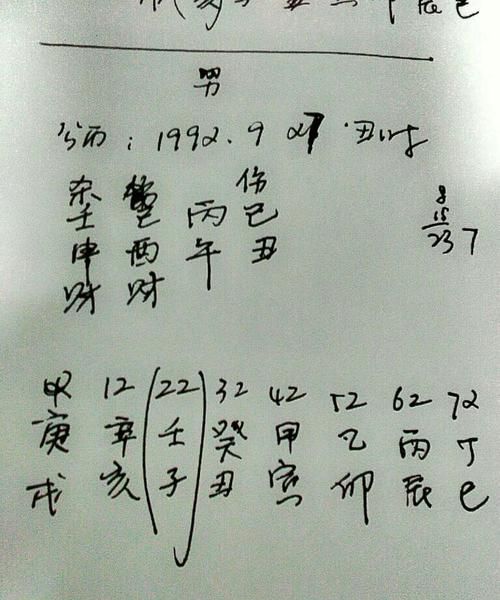 男
公历：1992.9 27.丑时
杀 伤
壬 己 丙 己
申 酉 午 丑
财 财
8
15
23 7
02 12 (22) 32 42 52 62 72
庚 辛 壬 癸 甲 乙 丙 丁
戌 亥 子 丑 寅 卯 辰 巳